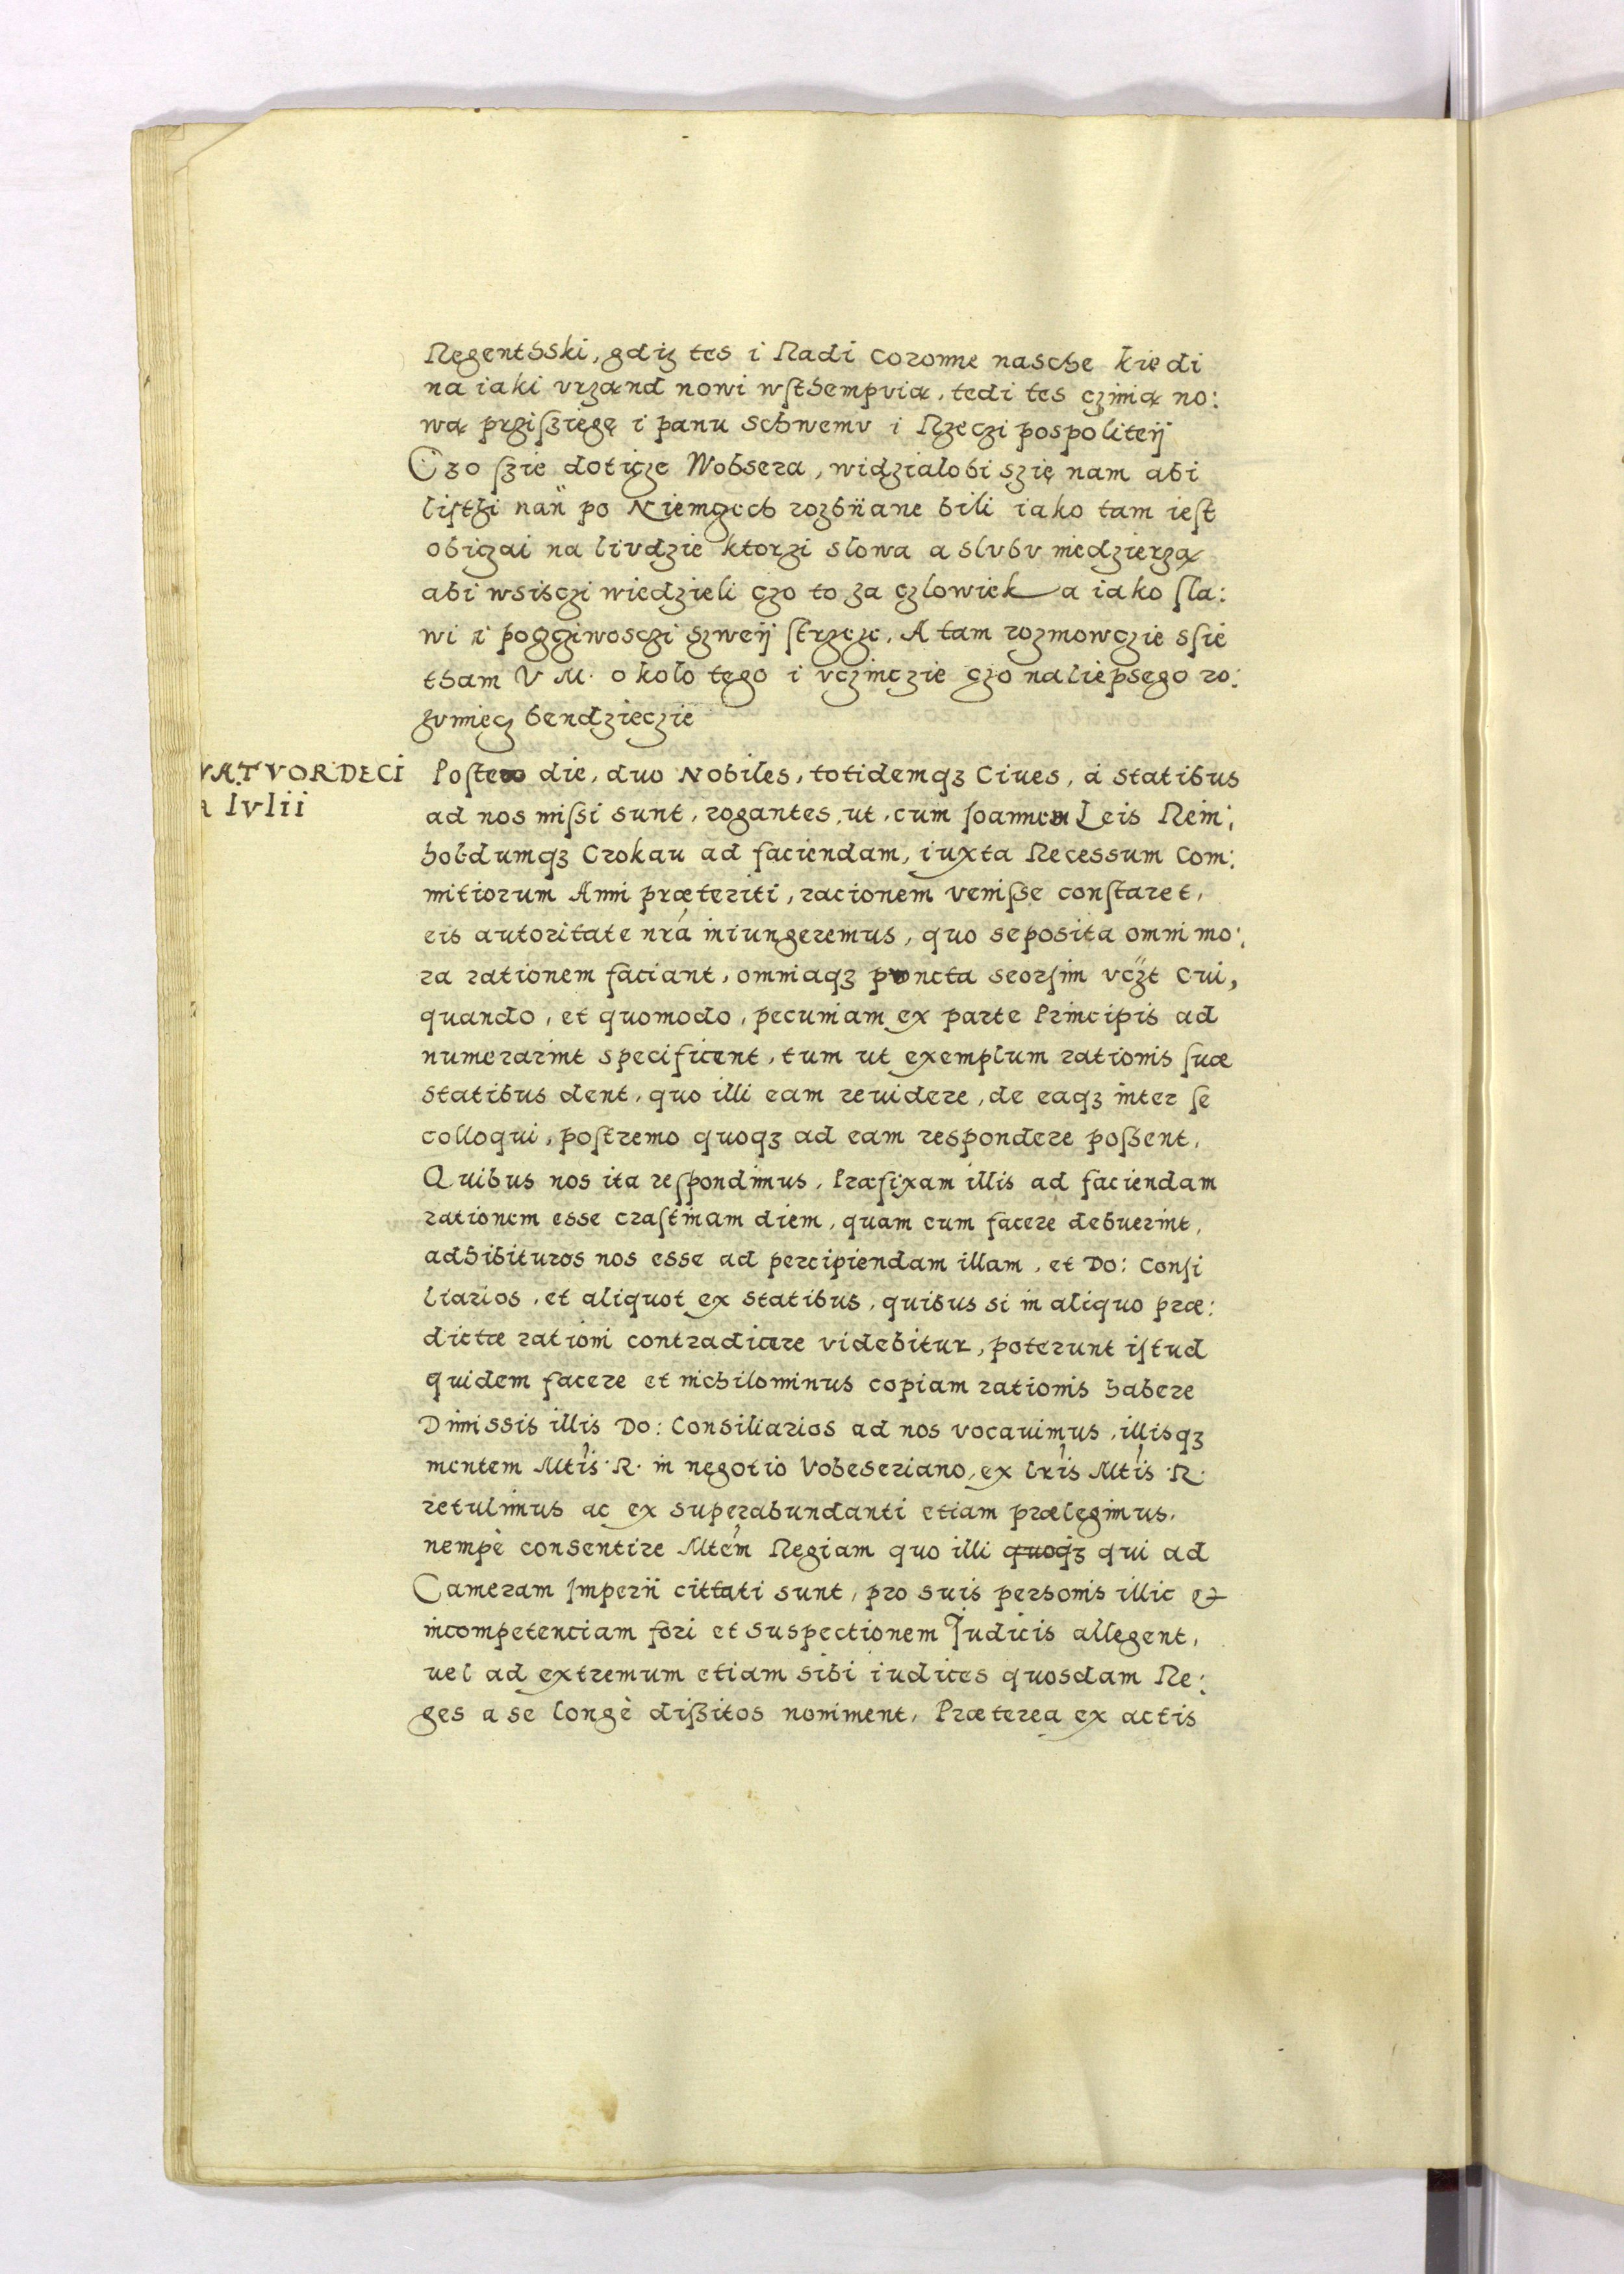 Regenthski, gdiz tes i Radi coronne nasche kiedi
na iaki vrzand nowi wsthempvią, tedi tes czinią no:
wą przisziegę i panu schwemv i Rzeczi pospoliteÿ
Czo szie doticze Wobsera, widzialobi szię nam abi
listhi nan po Niemczech rozbiiane bili iako tam iest
obiczai na livdzie ktorzi slowa a slvbv niedzierzą
abi wsisczi wiedzieli czo to za czlowiek a iako sla:
wi i poczciwosczi szweÿ strzeze. A tam rozmowczie ssie
tham V M. okolo tego i vczinczie czo naliepsego ro:
zvmięcz bendzieczie
VATVORDECI
a Ivlii
Postero die, duo Nobiles, totidemqz Ciues, á statibus
ad nos missi sunt, rogantes, ut, cum Joannem Leis Rein:
holdumqz Crokau ad faciendam, iuxta Recessum Com:
mitiorum Anni præteriti, racionem venisse constaret,
eis autoritate nrá iniungeremus, quo seposita omni mo:
ra rationem faciant, omniaqz puncta seorsim vczt cui,
quando, et quomodo, pecuniam ex parte Principis ad
numerarint specificent, tum ut exemplum rationis suæ
statibus dent, quo illi eam reuidere, de eaqz inter se
colloqui, postremo quoqz ad eam respondere possent.
Quibus nos ita respondimus, Præfixam illis ad faciendam
rationem esse crastinam diem, quam cum facere debuerint,
adhibituros nos esse ad percipiendam illam, et Do: Consi
liarios, et aliquot ex statibus, quibus si in aliquo præ:
dictæ rationi contradicere videbitur, poterunt istud
quidem facere et nichilominus copiam rationis habere
Dimissis illis Do: Consiliarios ad nos vocauimus, illisqz
mentem Mtis R. in negotio Vobeseriano, ex lris Mtis R.
retulimus ac ex superabundanti etiam prælegimus,
nempè consentire Mtem Regiam quo illi quoqz qui ad
Cameram Imperii cittati sunt, pro suis personis illic et
incompetenciam fori et suspectionem Judicis allegent,
uel ad extremum etiam sibi iudices quosdam Re:
ges a se longè dissitos nominent, Præterea ex actis